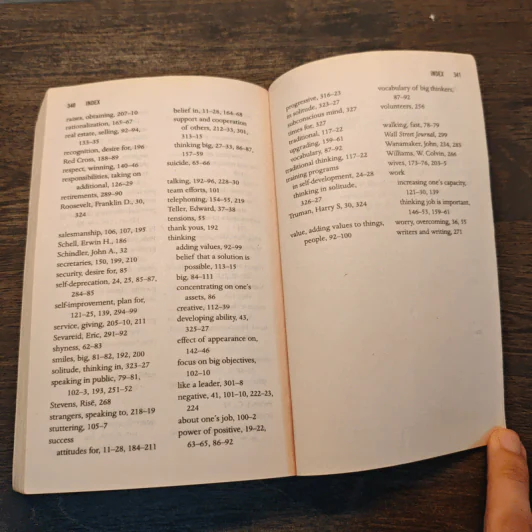 340 INDEX
raises, obtaining, 207–10
rationalization, 165–67
real estate, selling, 92–94,
133–35
recognition, desire for, 196
Red Cross, 188–89
respect, winning, 140–46
responsibilities, taking on
additional, 126–29
retirements, 289–90
Roosevelt, Franklin D., 30,
324
salesmanship, 106, 107, 195
Schell, Erwin H., 186
Schindler, John A., 32
secretaries, 150, 199, 210
security, desire for, 85
self-deprecation, 24, 25, 85–87,
284–85
self-improvement, plan for,
121–25, 139, 294–99
service, giving, 205–10, 211
Sevareid, Eric, 291–92
shyness, 62–83
smiles, big, 81–82, 192, 200
solitude, thinking in, 323–27
speaking in public, 79–81,
102–3, 193, 251–52
Stevens, Risë, 268
strangers, speaking to, 218–19
stuttering, 105–7
success
attitudes for, 11–28, 184–211
belief in, 11–28, 164–68
support and cooperation
of others, 212–33, 301,
313–15
thinking big, 27–53, 86–87,
157–59
suicide, 65–66
talking, 192–96, 228–30
team efforts, 101
telephoning, 154–55, 219
Teller, Edward, 37–38
tensions, 55
thank yous, 192
thinking
adding values, 92–99
belief that a solution is
possible, 113–15
big, 84–111
concentrating on one's
assets, 86
creative, 112–39
developing ability, 43,
325–27
effect of appearance on,
142–46
focus on big objectives,
102–10
like a leader, 301–8
negative, 41, 101–10, 222–23,
224
about one's job, 100–2
power of positive, 19–22,
63–65, 86–92
INDEX 341
progressive, 316–23
in solitude, 323–27
subconscious mind, 327
times for, 327
traditional, 117–22
upgrading, 159–61
vocabulary, 87–92
traditional thinking, 117–22
training programs
in self-development, 24–28
thinking in solitude,
326–27
Truman, Harry S, 30, 324
value, adding values to things,
people, 92–100
vocabulary of big thinkers,
87–92
volunteers, 256
walking, fast, 78–79
Wall Street Journal, 299
Wanamaker, John, 234, 283
Williams, W. Colvin, 266
wives, 173–76, 203–5
work
increasing one's capacity,
121–30, 139
thinking job is important,
146–53, 159–61
worry, overcoming, 36, 55
writers and writing, 273